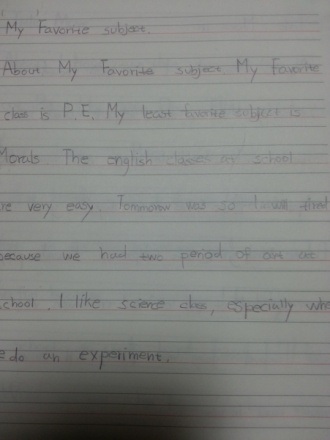 My Favorite subject.
About My Favorite subject My Favorite
class is P.E. My least favorite subject is
Morals The english classes at school
re very easy. Tommorw was so that
because we had two period of art at
school. I like science class, especially whe
e do an experiment.